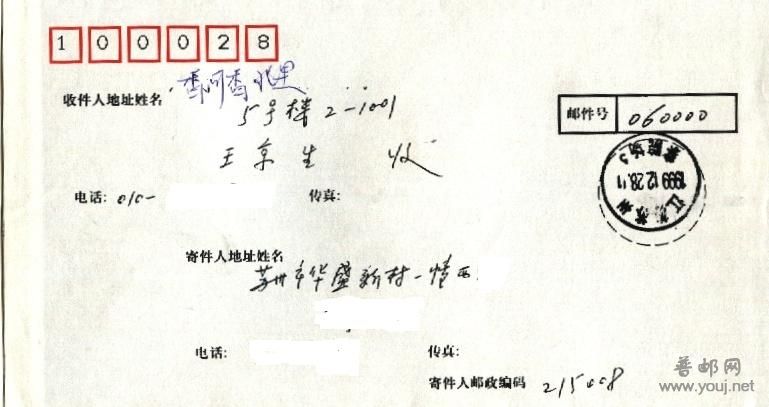 100028
收件人地址姓名 香河香北里
5号楼 2-1001
王京生 收
邮件号 060000
电话: 010- 传真:
江苏 苏州
1999.12.28.11
寄件人地址姓名
苏州市华盛新村一幢西
电话: 传真:
寄件人邮政编码 215008
普邮网
www.youj.net